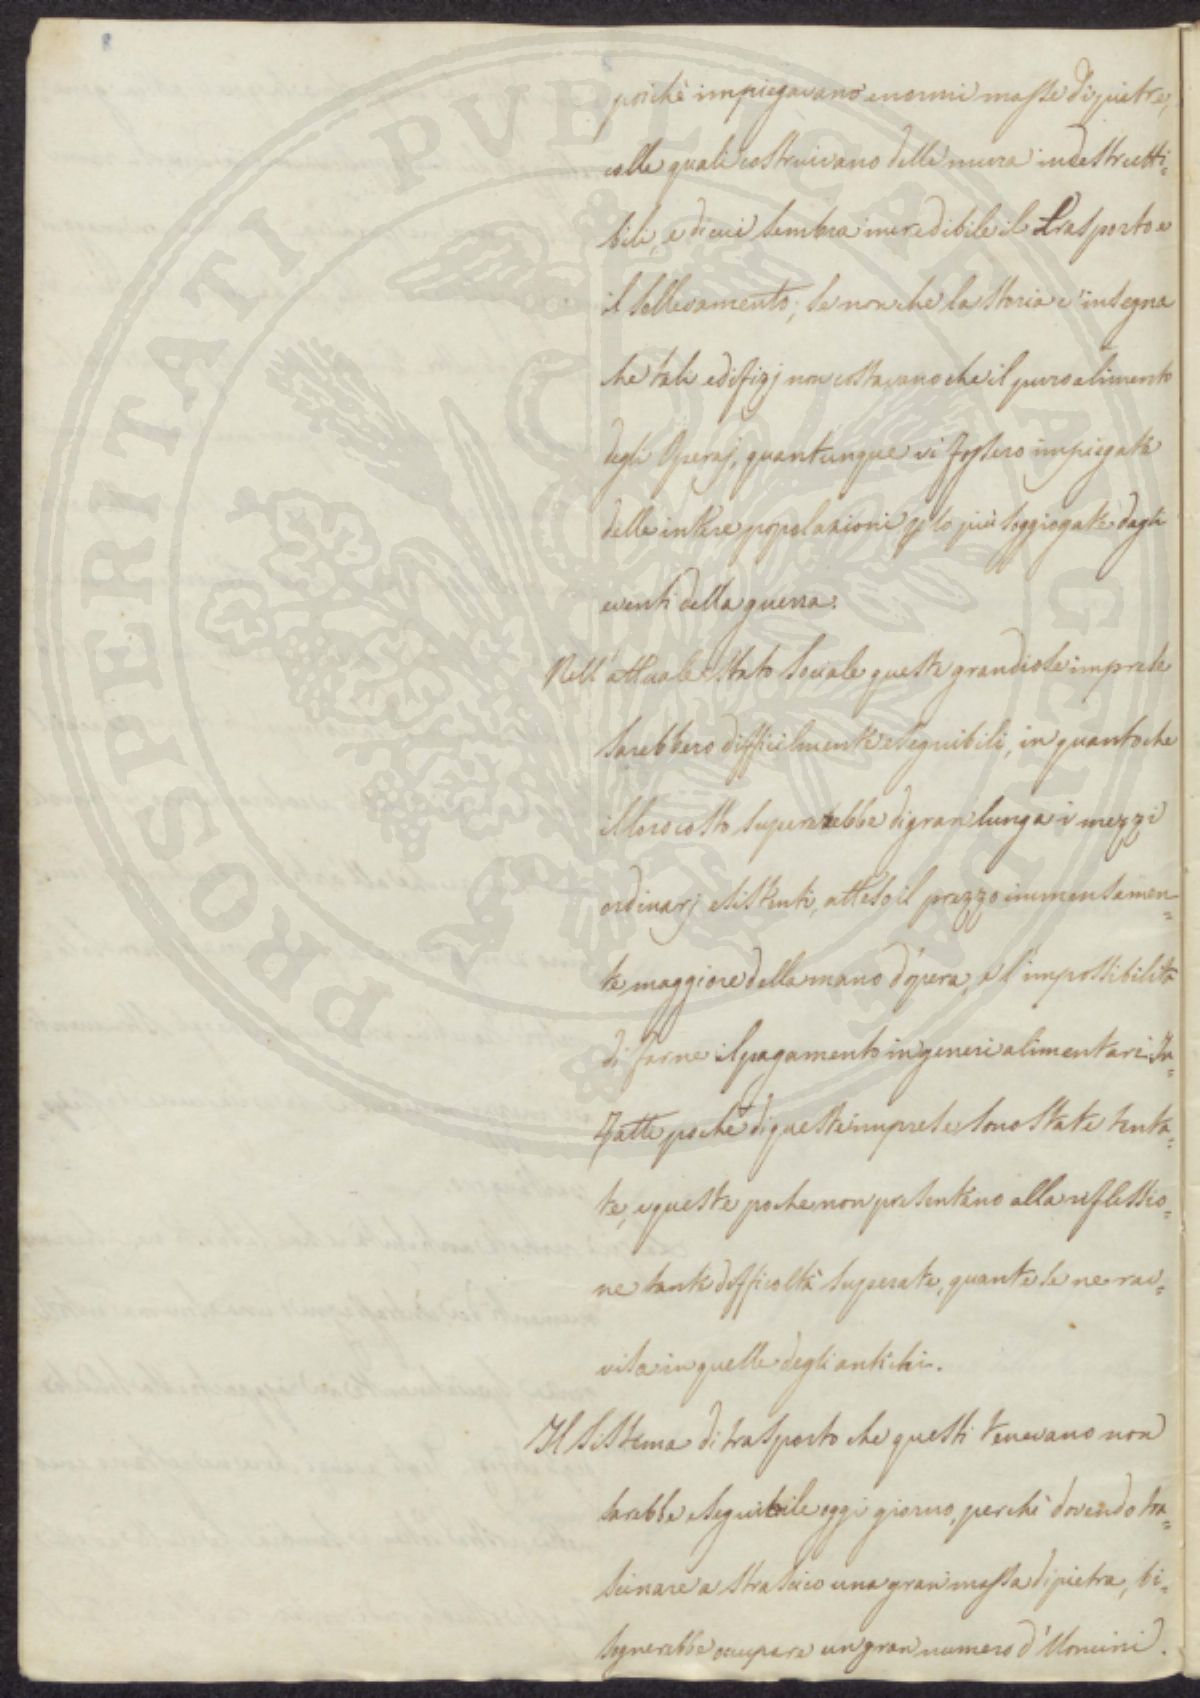 PROSPERITATI PVBLICAE AVGENDAE
poichè impiegavano enormi masse di pietre,
colle quali costruivano delle mura indestrutti=
bili, e di cui sembra incredibile il trasporto e
il sollevamento; se non che la storia c'insegna
che tali edifizj non costavano che il puro alimento
degli Operaj, quantunque vi fossero impiegate
delle intere popolazioni p lo più soggiogate dagli
eventi della guerra.
Nell'attuale stato sociale queste grandiose imprese
sarebbero difficilmente eseguibili, in quanto che
il loro costo supererebbe di gran lunga i mezzi
ordinarj esistenti, atteso il prezzo immensamen=
te maggiore della mano d'opera, e l'impossibilità
di farne il pagamento in generi alimentari. In=
fatti poche di queste imprese sono state tenta=
te, e queste poche non presentano alla riflessio=
ne tante difficoltà superate, quante se ne rav=
visa in quelle degli antichi.
Il sistema di trasporto che questi tenevano non
sarebbe eseguibile oggi giorno, perchè dovendo tra=
scinare a strascico una gran massa di pietra, bi=
sognerebbe occupare un gran numero d'Uomini.